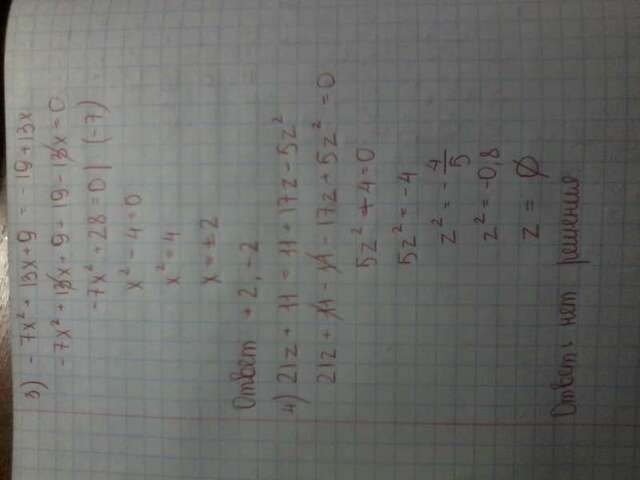 3) -7x² + 13x + 9 = -19 + 13x
-7x² + 13x + 9 + 19 - 13x = 0
-7x² + 28 = 0 | (-7)
x² - 4 = 0
x² = 4
x = ±2
Ответ +2, -2
4) 21z + 11 = 11 + 17z - 5z²
21z + 11 - 11 - 17z + 5z² = 0
5z² + 4 = 0
5z² = -4
z² = -4/5
z² = -0,8
z = ∅
Ответ: нет решения